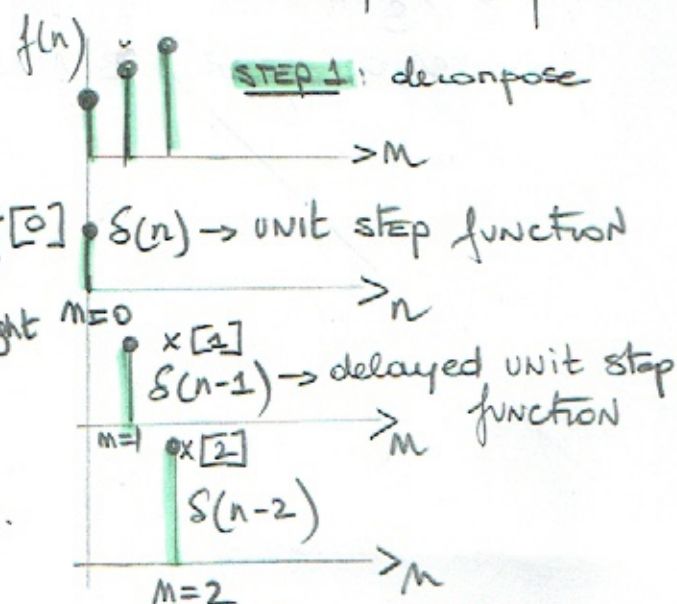 f(n)
STEP 1: decompose
>n
[0] δ(n) → UNIT STEP FUNCTION
>n
ght n=0
x[1]
δ(n-1) → delayed UNIT STEP
FUNCTION
n=1
>n
x[2]
δ(n-2)
>n
n=2